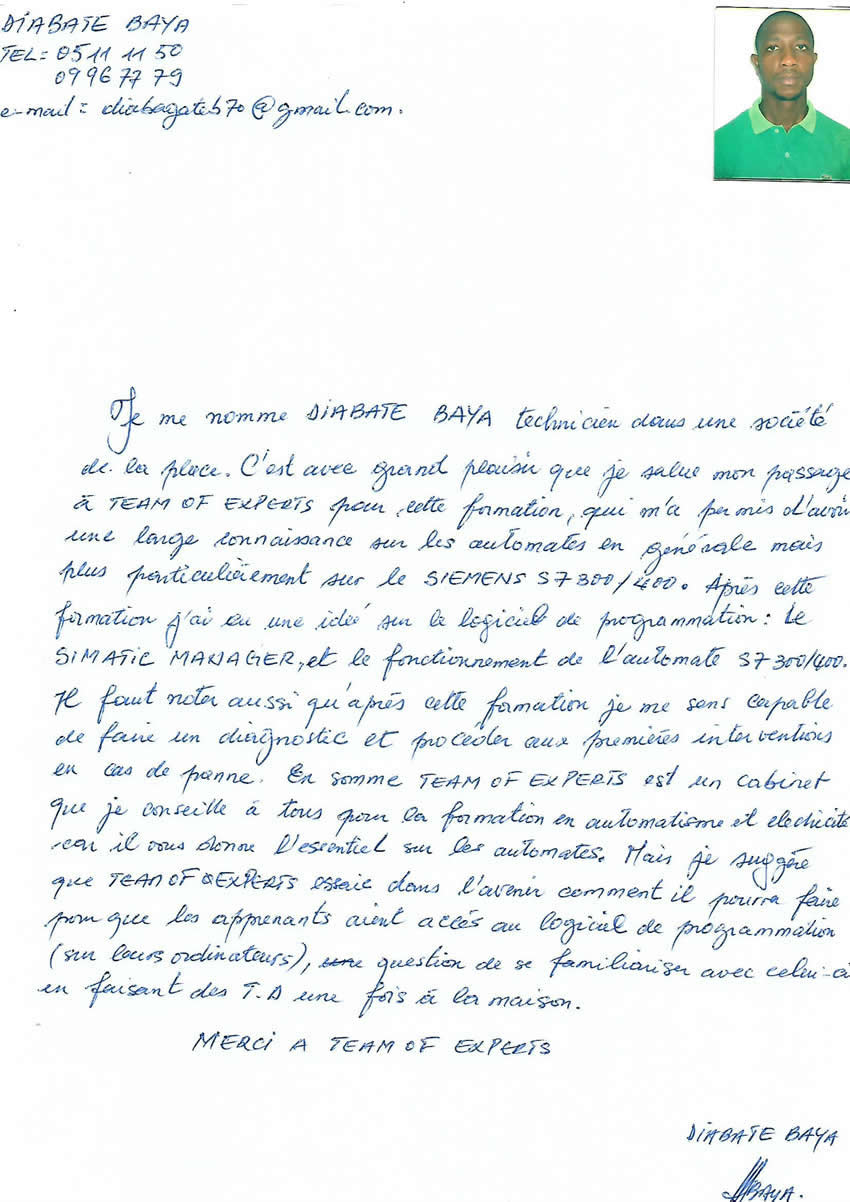 DIABATE BAYA
TEL: 05 11 11 50
09 96 77 79
e-mail: diabagateb70@gmail.com.
Je me nomme DIABATE BAYA technicien dans une société
de la place. C'est avec grand plaisir que je salue mon passage
à TEAM OF EXPERTS pour cette formation, qui m'a permis d'avoir
une large connaissance sur les automates en générale mais
plus particulièrement sur le SIEMENS S7 300/400. Après cette
formation j'ai eu une idée sur le logiciel de programmation: Le
SIMATIC MANAGER, et le fonctionnement de l'automate S7 300/400.
Il faut noter aussi qu'après cette formation je me sens capable
de faire un diagnostic et procéder aux premières interventions
en cas de panne. En somme TEAM OF EXPERTS est un cabinet
que je conseille à tous pour la formation en automatisme et electricité
car il vous donne l'essentiel sur les automates. Mais je suggère
que TEAM OF EXPERTS essaie dans l'avenir comment il pourra faire
pour que les apprenants aient accès au logiciel de programmation
(sur leurs ordinateurs), question de se familiariser avec celui-ci
en faisant des T.D une fois à la maison.
MERCI A TEAM OF EXPERTS
DIABATE BAYA
BAYA.